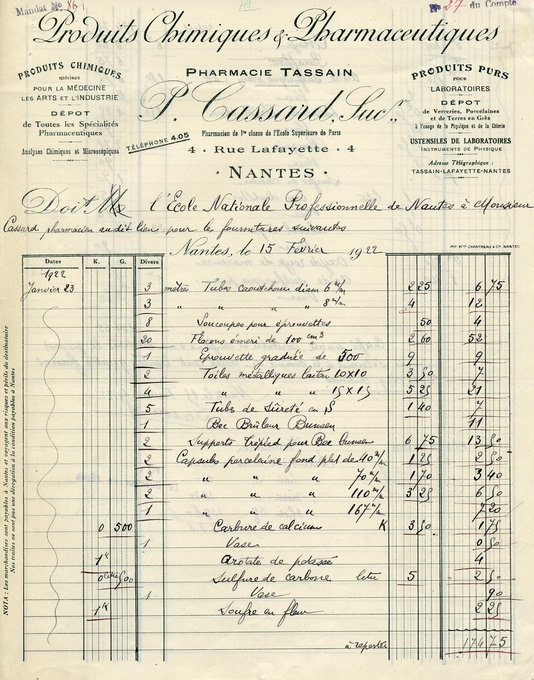 Mandat No 86
No 27 du Compte
Produits Chimiques & Pharmaceutiques
PRODUITS CHIMIQUES
spéciaux
POUR LA MÉDECINE
LES ARTS ET L'INDUSTRIE
DÉPOT
de Toutes les Spécialités
Pharmaceutiques
Analyses Chimiques et Microscopiques
PHARMACIE TASSAIN
P. Cassard, Sucr.
TÉLÉPHONE 4.05
Pharmacien de 1re classe de l'Ecole Supérieure de Paris
4 - Rue Lafayette - 4
NANTES
PRODUITS PURS
POUR
LABORATOIRES
DÉPOT
de Verreries, Porcelaines
et de Terres en Grès
à l'usage de la Physique et de la Chimie
USTENSILES DE LABORATOIRES
INSTRUMENTS DE PHYSIQUE
Adresse Télégraphique :
TASSAIN-LAFAYETTE-NANTES
Doit M l'Ecole Nationale Professionnelle de Nantes à Monsieur
Cassard pharmacien audit lieu pour les fournitures suivantes
Nantes, le 15 Février 1922
IMP. MCE CHANTREAU & CIE, NANTES
Dates K. G. Divers
1922
Janvier 23 3 mètres Tubes caoutchouc diam 6 m/m 2 25 6 75
3 " " " 8 m/m 4 12
8 Soucoupes pour éprouvettes 50 4
20 Flacons émeri de 100 cm3 2 60 52
1 Eprouvette graduée de 500 9 9
2 Toiles métalliques laiton 10X10 3 50 7
4 " " " 15X15 5 25 21
5 Tubes de sûreté en S 1 40 7
1 Bec Brûleur Bunsen 11
2 Supports trépied pour Bec bunsen 6 75 13 50
2 Capsules porcelaine fond plat de 40 m/m 1 25 2 50
2 " " " 70 m/m 1 70 3 40
2 " " " 110 m/m 3 25 6 50
1 " " " 167 m/m 7 20
0 500 Carbure de calcium K 3 50 1 75
1 Vase 0 50
1K Azotate de potasse 4
0 litre 500 Sulfure de carbone litre 5 2 50
1 Vase 90
1K Soufre en fleur 2 25
à reporter 174 75
NOTA : Les marchandises sont payables à Nantes et voyagent aux risques et périls du destinataire
Nos traites ne sont pas une dérogation à la condition payables à Nantes